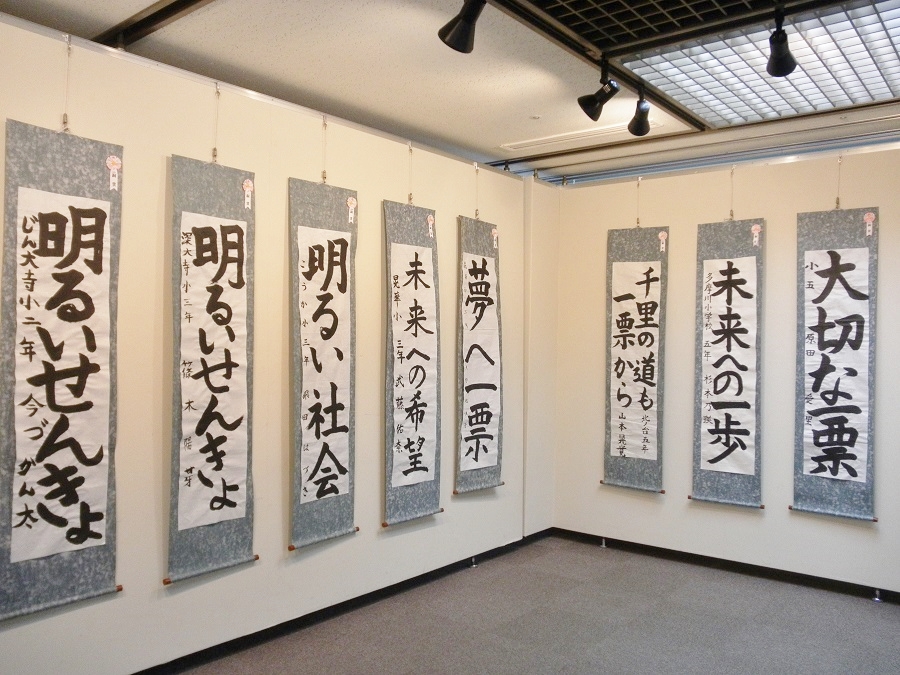 明るいせんきょ
じん大寺小二年 今づ がん太
明るいせんきょ
深大寺小三年
明るい社会
未来への希望
晃華小 三年 武藤佑奈
夢へ一票
千里の道も
一票から
北ノ台五年
未来への一歩
多摩川小学校 五年
大切な一票
小五 原田